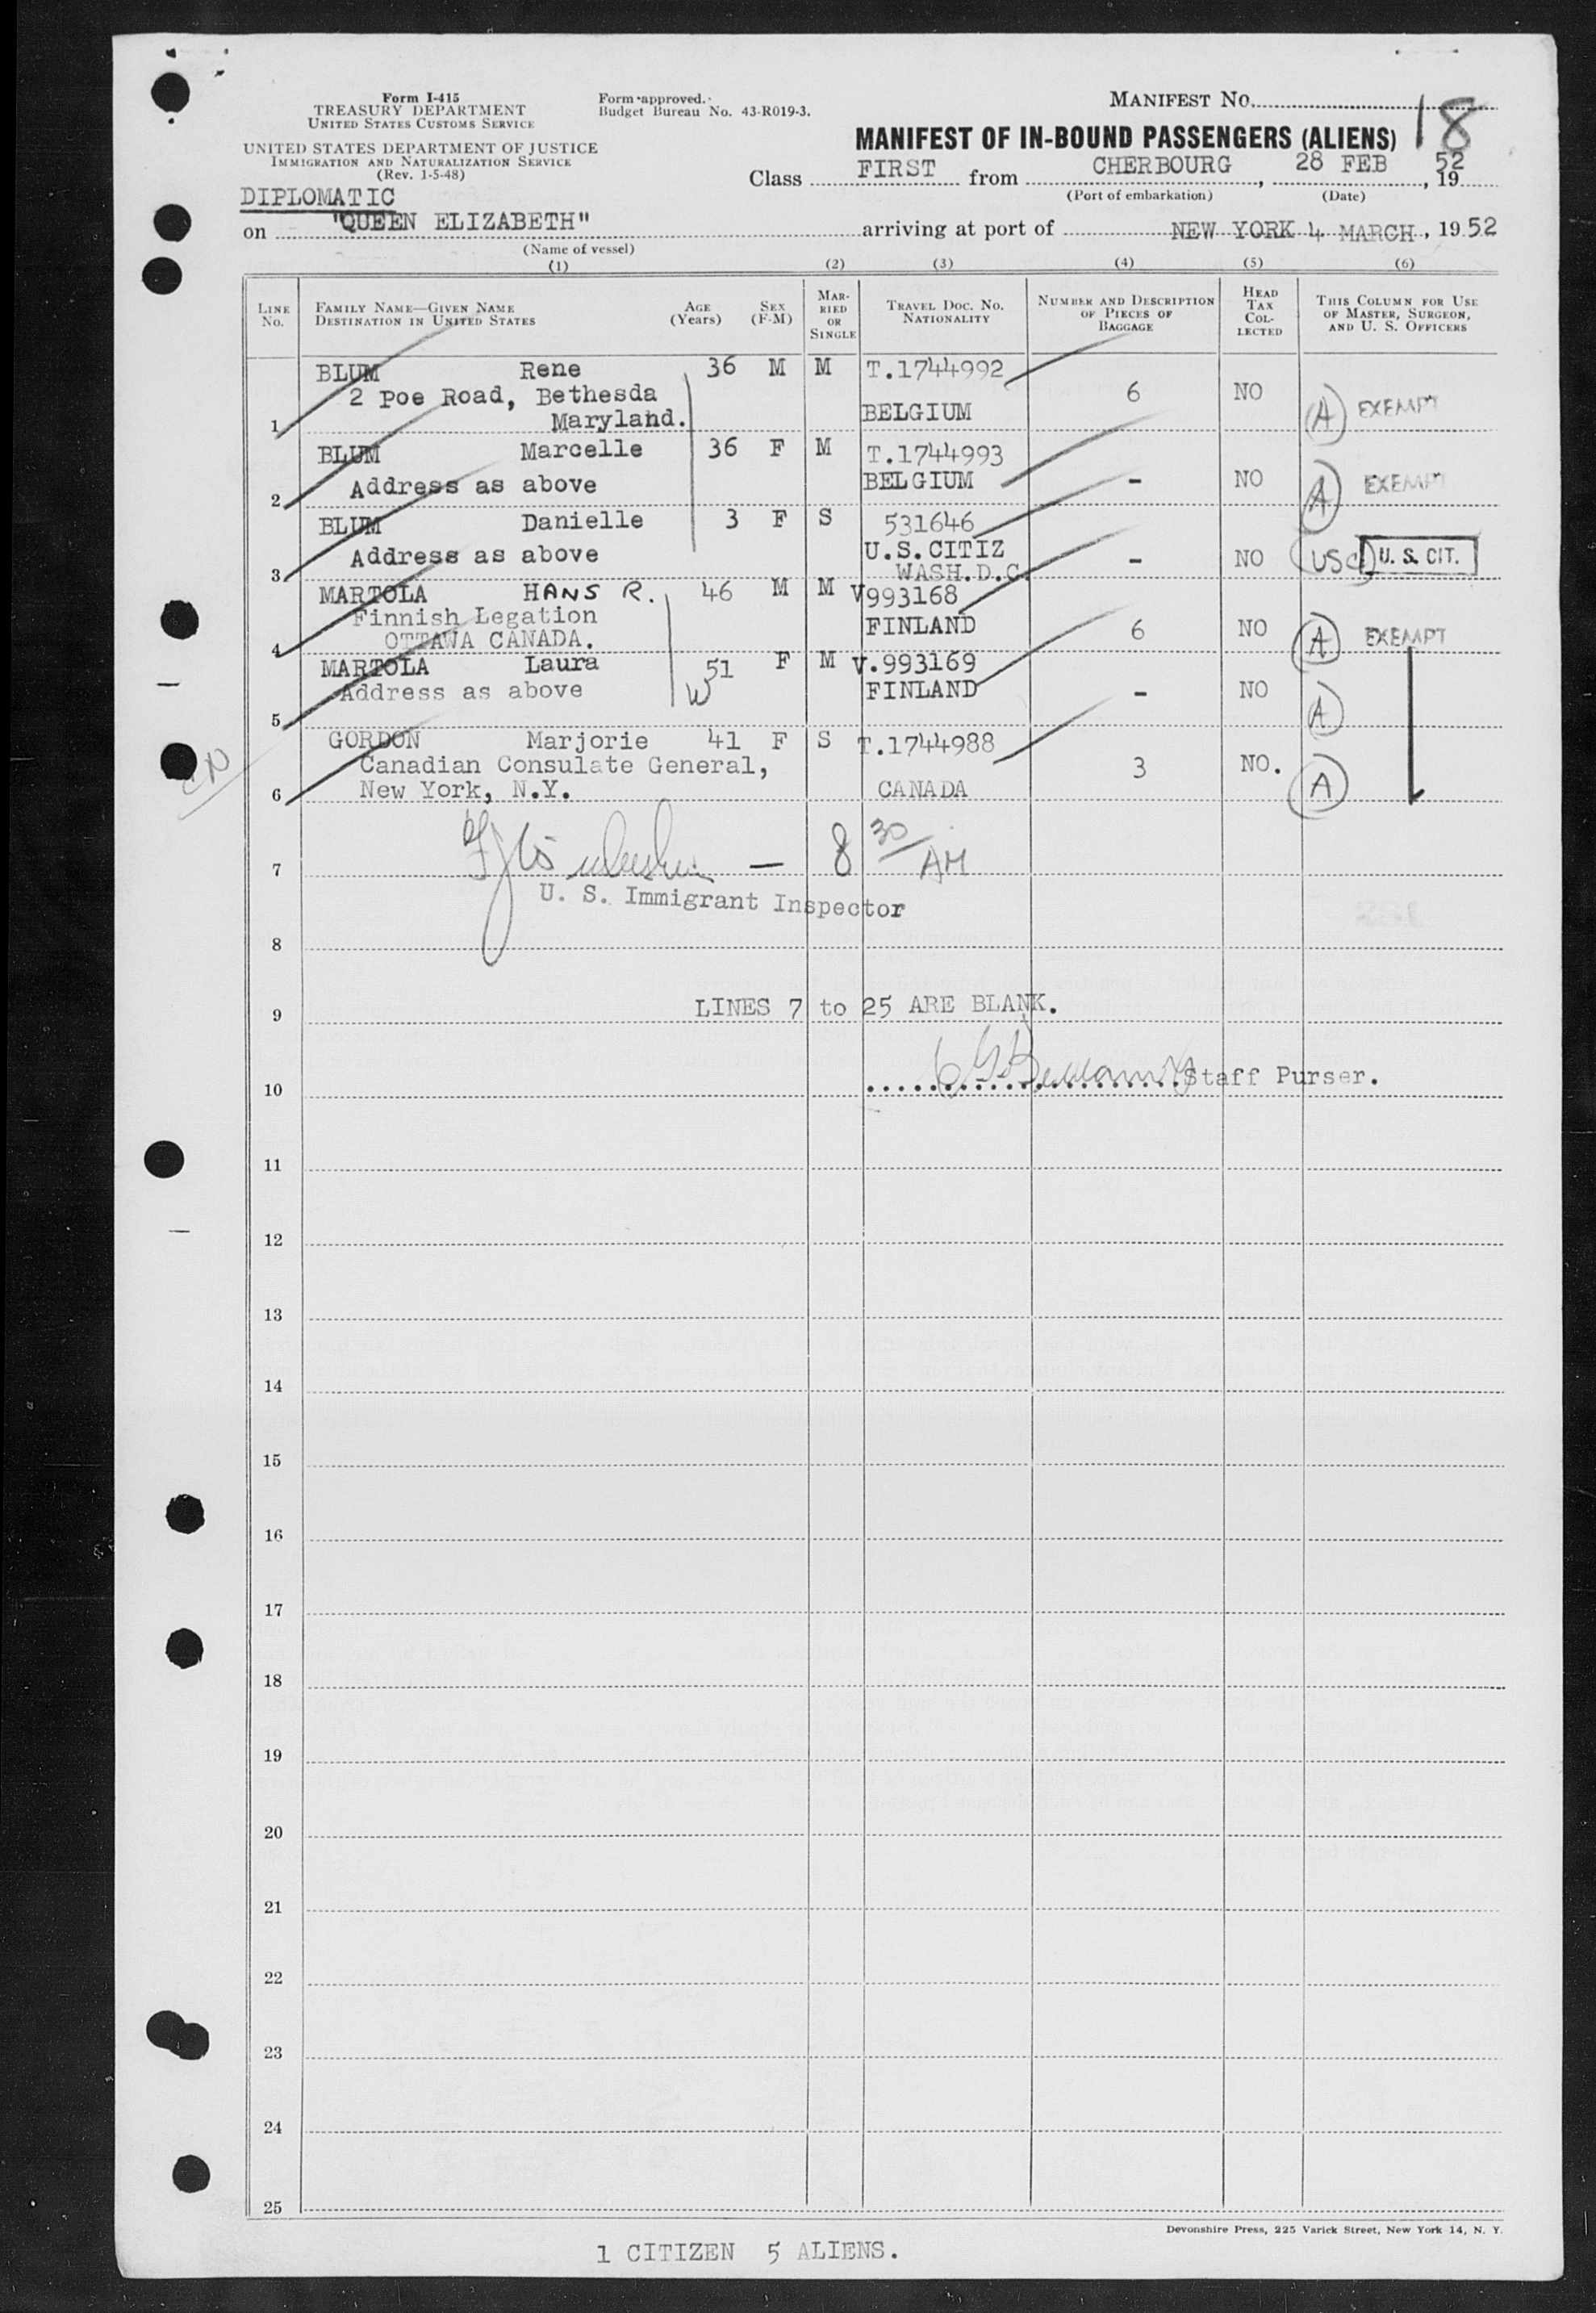 Form I-415
TREASURY DEPARTMENT
UNITED STATES CUSTOMS SERVICE
UNITED STATES DEPARTMENT OF JUSTICE
IMMIGRATION AND NATURALIZATION SERVICE
(Rev. 1-5-48)
Form approved.
Budget Bureau No. 43-R019-3.
MANIFEST No. 18
MANIFEST OF IN-BOUND PASSENGERS (ALIENS)
Class FIRST from CHERBOURG, 28 FEB, 19 52
(Port of embarkation) (Date)
DIPLOMATIC
on "QUEEN ELIZABETH" arriving at port of NEW YORK 4 MARCH, 19 52
(Name of vessel)
(1) (2) (3) (4) (5) (6)
LINE No. FAMILY NAME—GIVEN NAME DESTINATION IN UNITED STATES AGE (Years) SEX (F-M) MARRIED OR SINGLE TRAVEL DOC. NO. NATIONALITY NUMBER AND DESCRIPTION OF PIECES OF BAGGAGE HEAD TAX COLLECTED THIS COLUMN FOR USE OF MASTER, SURGEON, AND U. S. OFFICERS
BLUM Rene 36 M M T.1744992
2 Poe Road, Bethesda 6 NO
1 Maryland. BELGIUM A EXEMPT
BLUM Marcelle 36 F M T.1744993
2 Address as above BELGIUM - NO A EXEMPT
BLUM Danielle 3 F S 531646
Address as above U.S.CITIZ - NO USC U. S. CIT.
3 WASH.D.C.
MARTOLA HANS R. 46 M M V993168
Finnish Legation FINLAND 6 NO A EXEMPT
4 OTTAWA CANADA.
MARTOLA Laura 51 F M V.993169
Address as above W FINLAND - NO A
5
GORDON Marjorie 41 F S T.1744988
Canadian Consulate General, 3 NO. A
6 New York, N.Y. CANADA
7 — 8 30 AM
U. S. Immigrant Inspector
8
LINES 7 to 25 ARE BLANK.
9
10 Staff Purser.
11
12
13
14
15
16
17
18
19
20
21
22
23
24
25
Devonshire Press, 225 Varick Street, New York 14, N. Y.
1 CITIZEN 5 ALIENS.